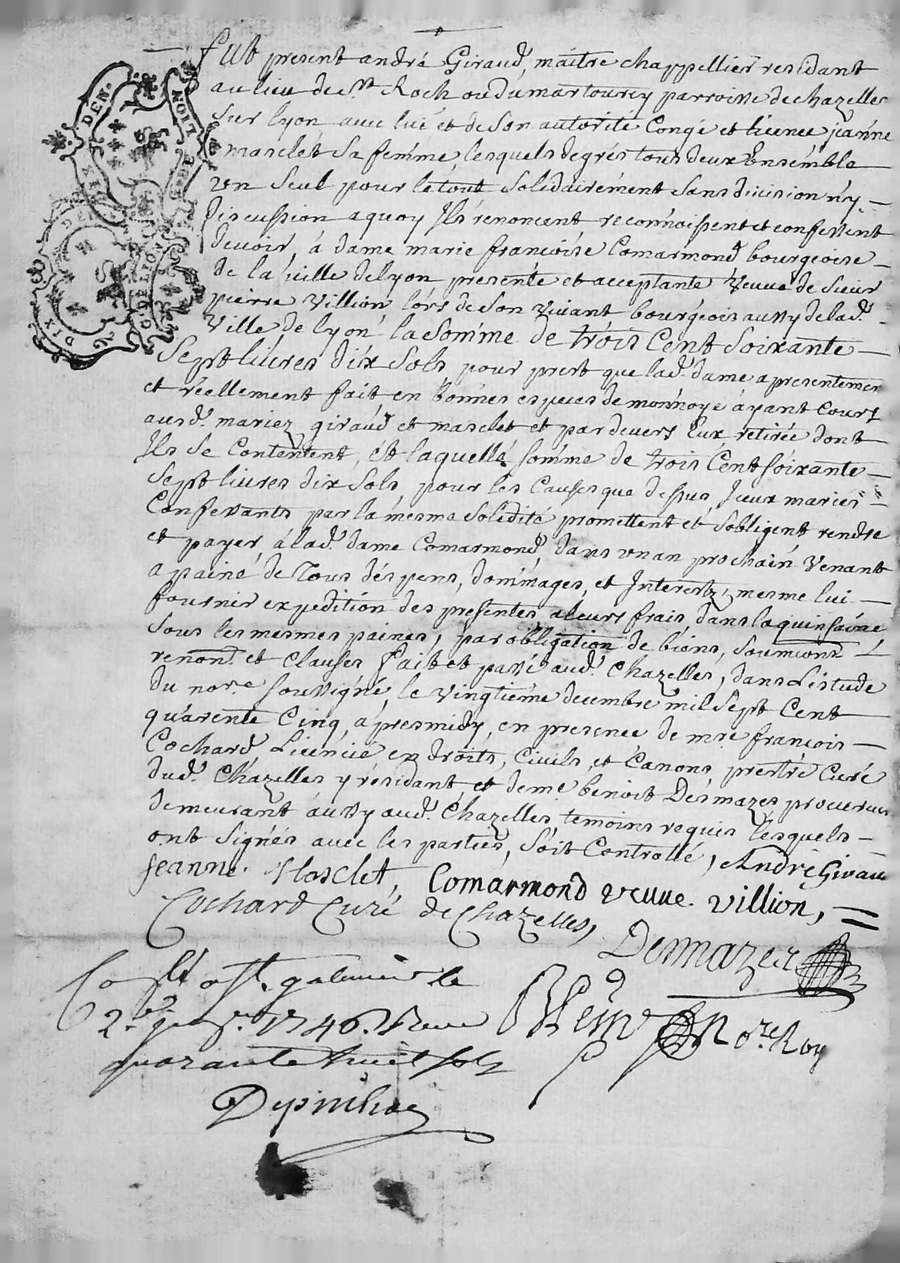 DEN. NOIT
DIX DE
DIX
fut present andré Giraud, maître chappellier residant
au lieu de St. Roch ou du martourey parroisse de chazelles
sur lyon avec luÿ et de son autorité Congé et licence jeanne
masclet sa femme lesquels de grés tous deux Ensemble
un seul pour le tout solidairement sans division n'y
discussion a quoy Ils renoncent reconnoissent et confessent
devoir, à dame marie françoise Comarmond bourgeoise
de la ville de lyon, presente et acceptante Veuve de sieur
pierre Villion lors de son vivant bourgeois aussy de lad.
Ville de lyon la somme de trois Cent soixante
Sept livres dix sols pour prest que lad. dame a presentement
et réellement fait en bonnes especes de monnoye àyant cours
ausd. mariez giraud et masclet et par devers Eux retirée dont
Ils se Contentent, ét laquelle somme de trois Cent soixante
sept livres dix sols pour les Causes que dessus Iceux mariés
Confessants par la mesme solidité promettent et s'obligent rendre
et payer, à lad. dame Comarmond, dans un an prochain Venant
a paine de Tous déspens, dommages, et Interetz, mesme lui
fournir expedition des presentes a leurs frais, dans la quinsaine
sous les mesmes paines, par obligation de biens, soumions
renond. et Clauses fait et passé aud. Chazelles, dans L'istude
du nore. soussigné, le vingtième decembre mil sept Cent
quarente Cinq, a presmidy, en presence de mre. françois
Cochard Licencié en droits, Civils, et Canons, prestre Curé
dud. Chazelles y résidant, et de me. benoit Desmazes procureur
demeurant áussy aud. Chazelles temoins requis lesquels
ont signés avec les parties, Soit Controllé, André Giraud
jeanne Masclet, Comarmond veuve villion,
Cochard Curé de Chazelles,
Desmazes
Conllé a St. galmier le
2e. janvr. 1746. Receu
nore. Roy
quarante huit sols